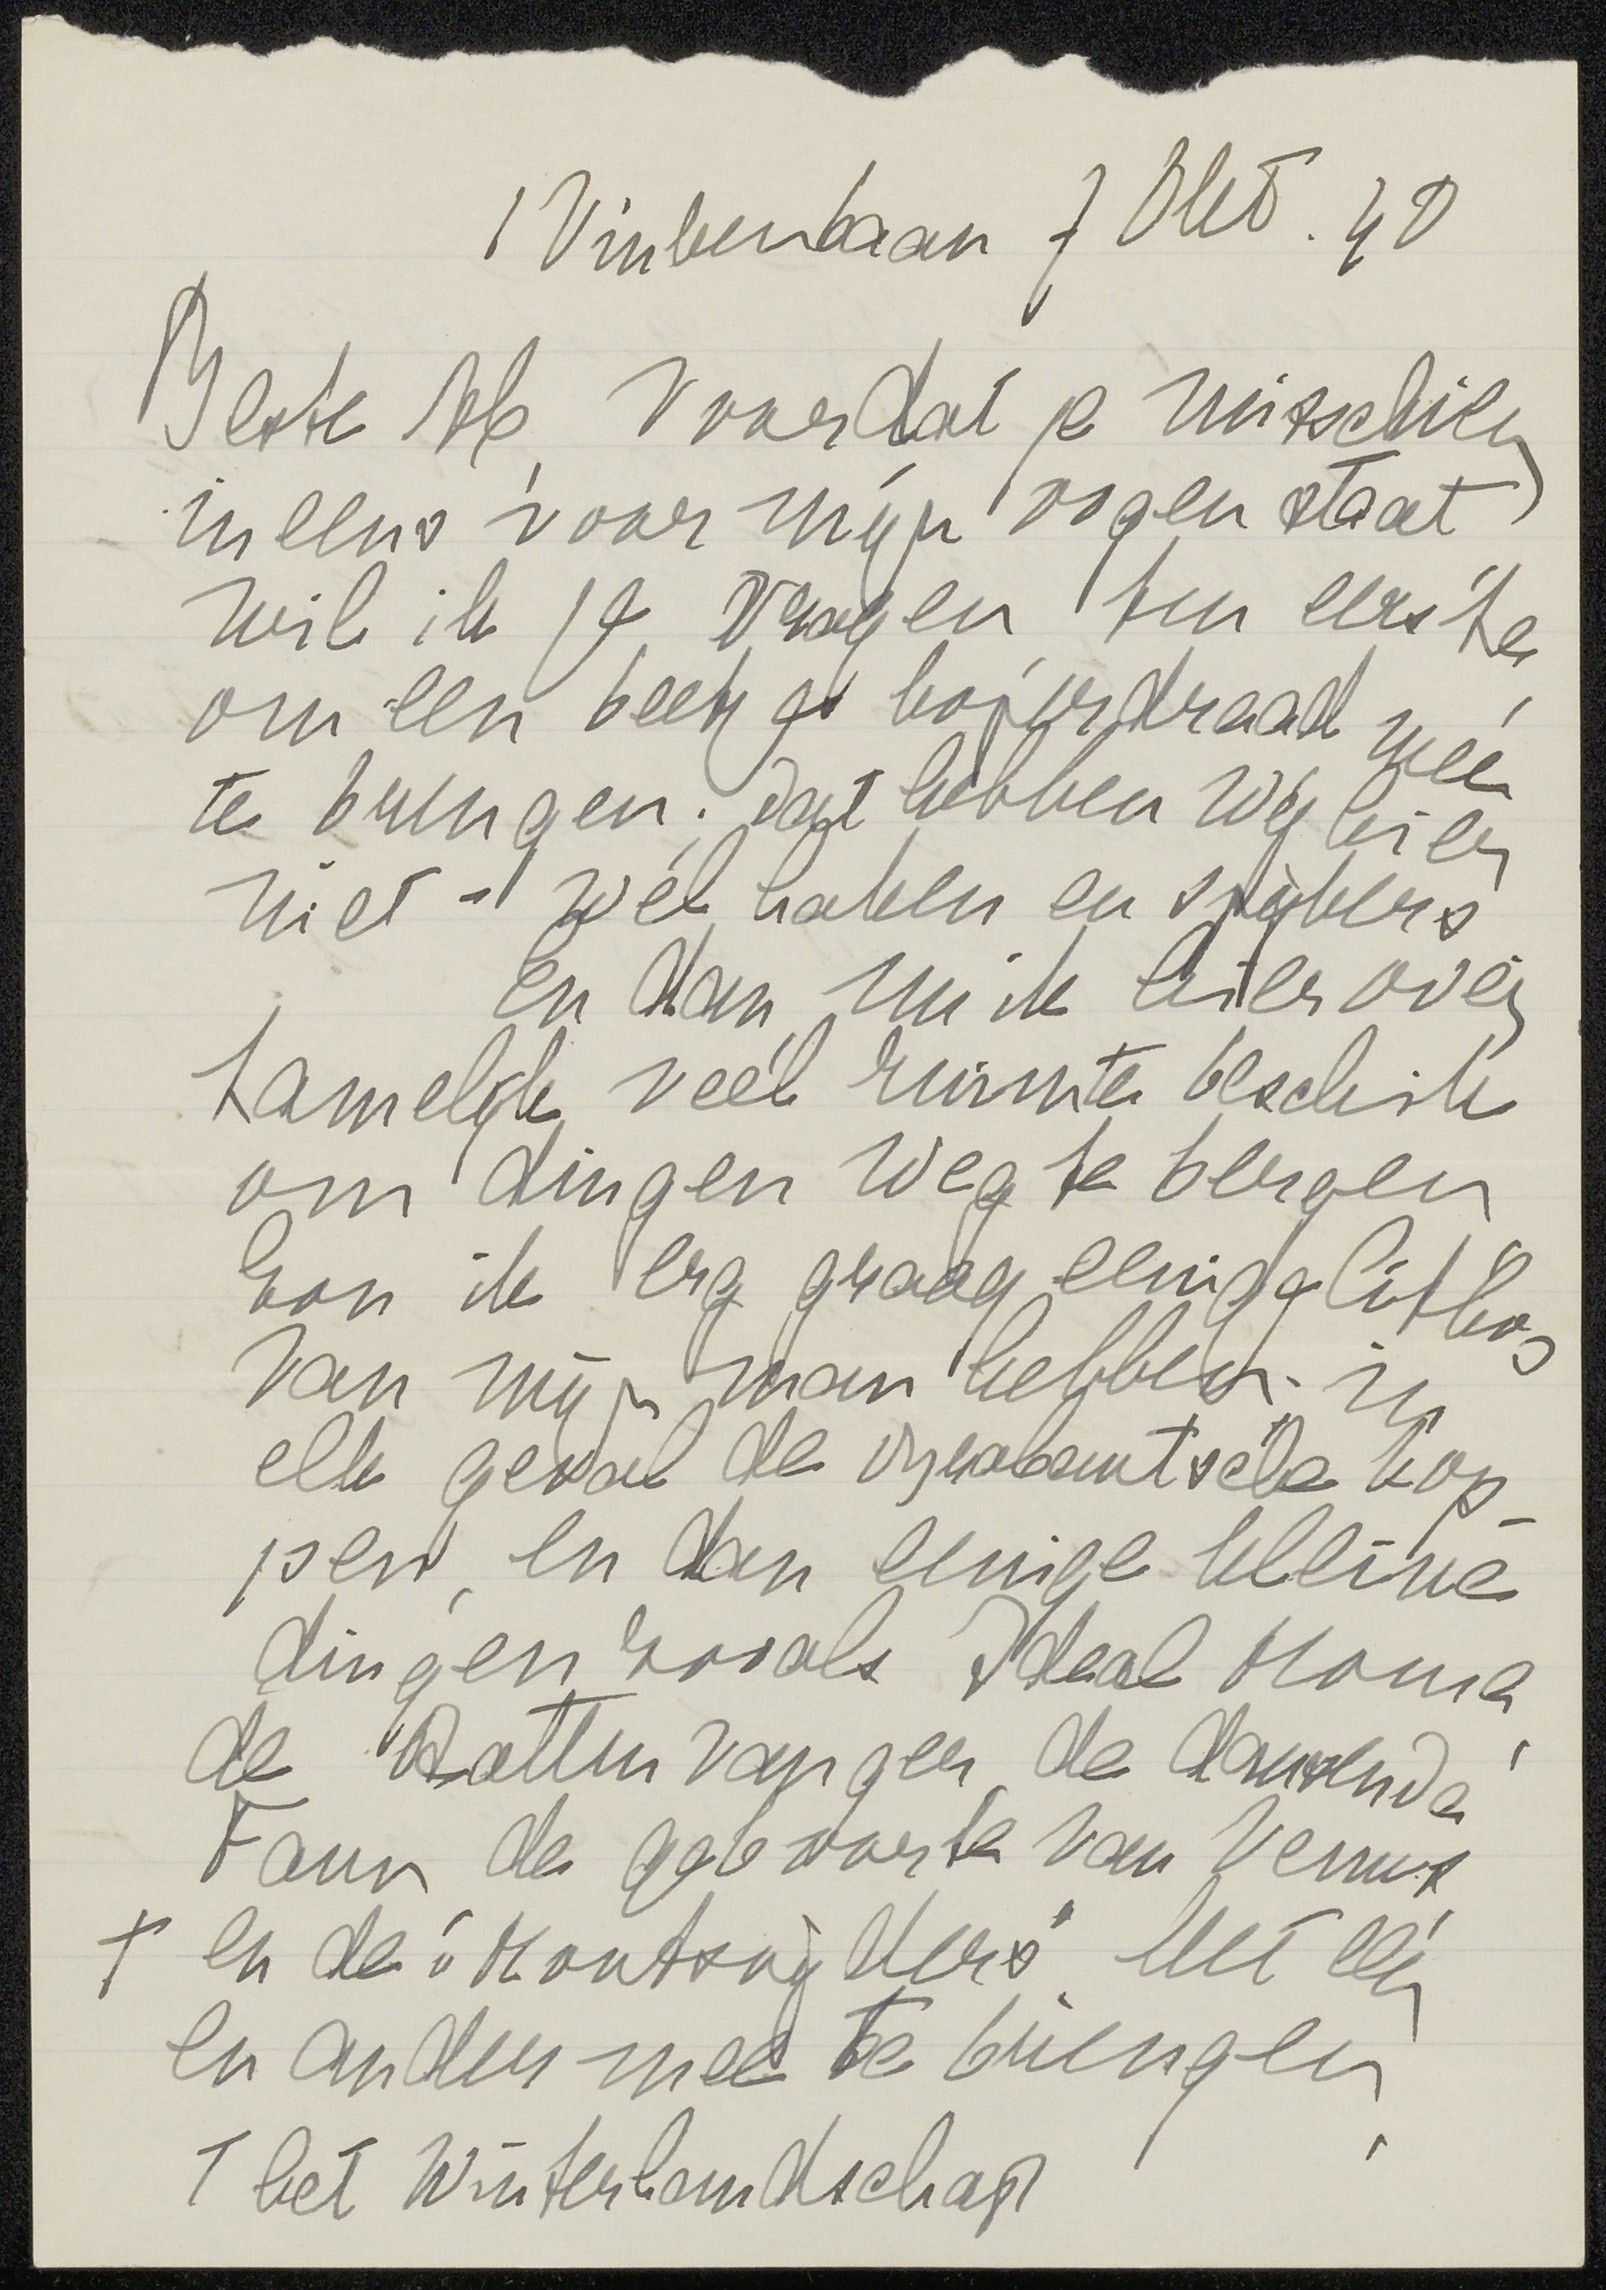 1 Vinkenbaan 7 Okt. 40
Beste Ab, Voordat je misschien
ineens voor mijn oogen staat
wil ik je vragen ten eerste
om een beetje koperdraad mee
te brengen. Dat hebben wij hier
niet - wel haken en spijkers
en dan, nu ik hier over
tamelijk veel ruimte beschik
om dingen weg te bergen
zou ik erg graag eenige litho's
van mijn man hebben. in
elk geval de Brabantsche kop-
pen, en dan eenige kleine
dingen zooals Ideal Home,
de Rattenvanger, de dansende
Faun de geboorte van Venus
+ en de "Houtsnijders" het een
en ander mee te brengen.
+ het Winterlandschap